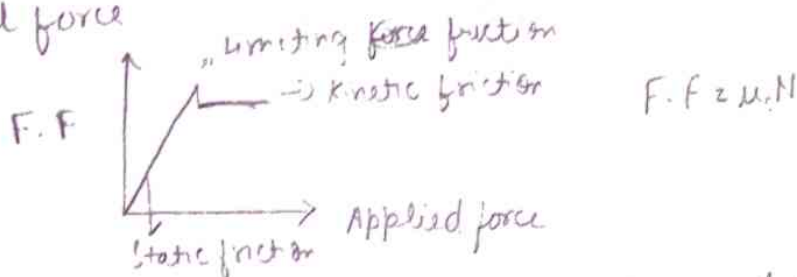 l force
limiting force friction
→ Kinetic friction
F.F
F.F = μ.N
Applied force
Static friction